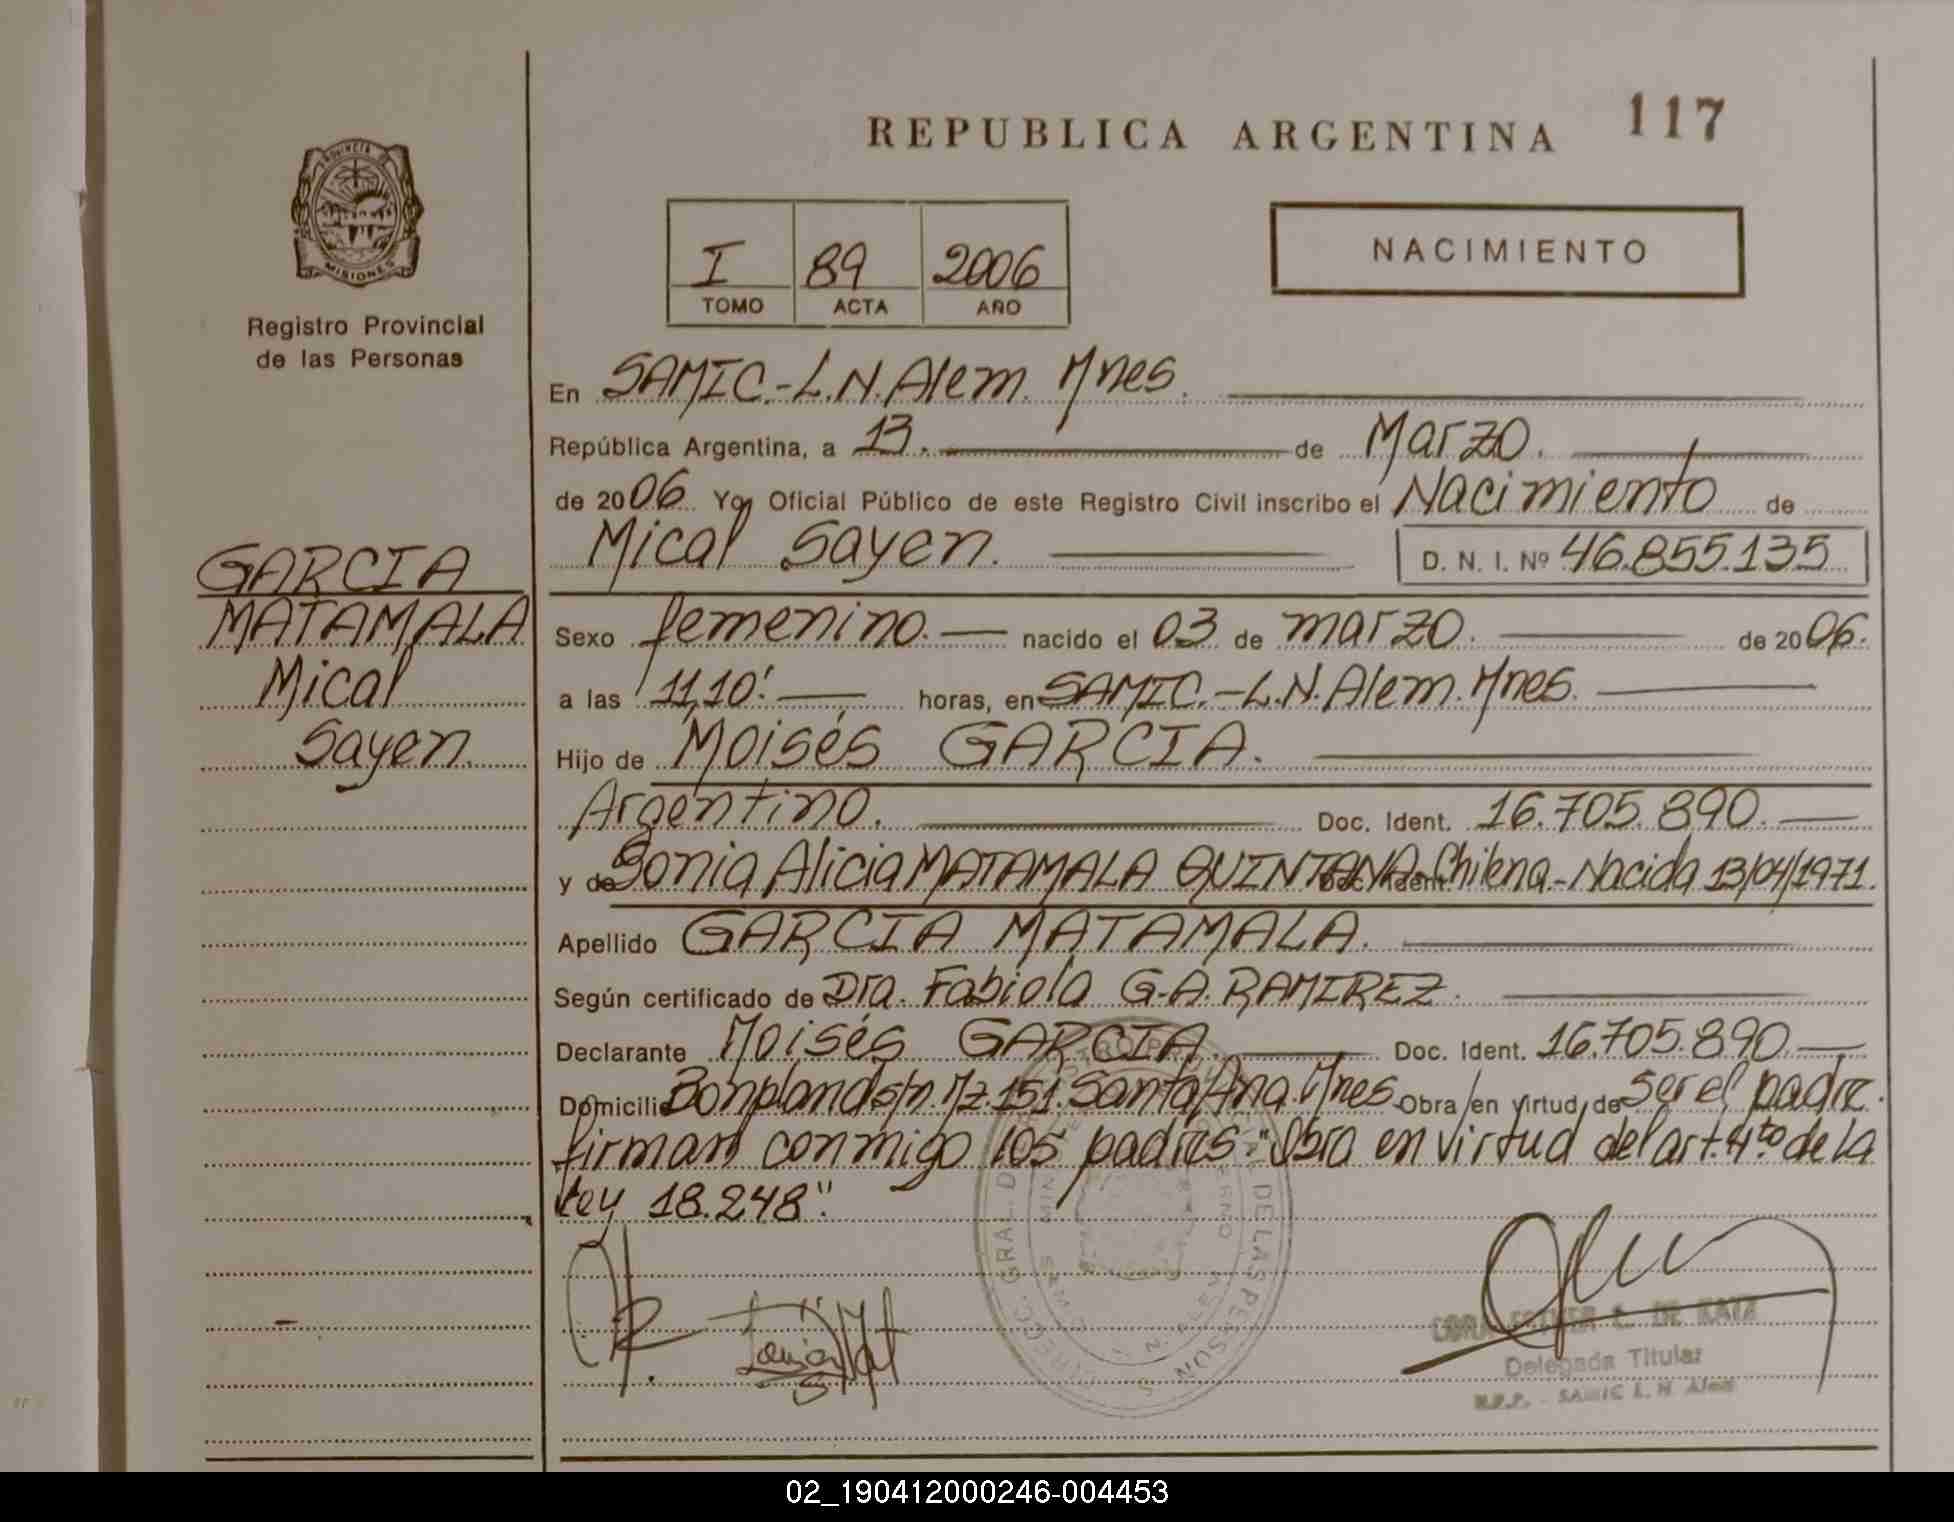 REPUBLICA ARGENTINA 117
PROVINCIA DE
MISIONES
Registro Provincial
de las Personas
I 89 2006
TOMO ACTA AÑO
NACIMIENTO
En SAMIC.-L.N.Alem. Mnes.
República Argentina, a 13. de Marzo.
de 2006. Yo, Oficial Público de este Registro Civil inscribo el Nacimiento de
Mical Sayen. D. N. I. Nº 46.855.135
GARCIA
MATAMALA
Mical
Sayen.
Sexo femenino. nacido el 03 de marzo. de 2006.
a las 11,10' horas, en SAMIC.-L.N.Alem.Mnes.
Hijo de Moisés GARCIA.
Argentino. Doc. Ident. 16.705.890.
y de Sonia Alicia MATAMALA QUINTANA. Chilena.-Nacida 13/04/1971.
Apellido GARCIA MATAMALA.
Según certificado de Dra. Fabiola G.A. RAMIREZ.
Declarante Moisés GARCIA. Doc. Ident. 16.705.890.
Domicilio Bonpland s/n. Mz.151. Santa Ana. Mnes. Obra en virtud de ser el padre.
firman conmigo los padres. "Obra en virtud del art. 4to de la
Ley 18.248".
DE LAS PERSON
Delegada Titular
R.P.P. - SAMIC L. N. Alem
02_190412000246-004453